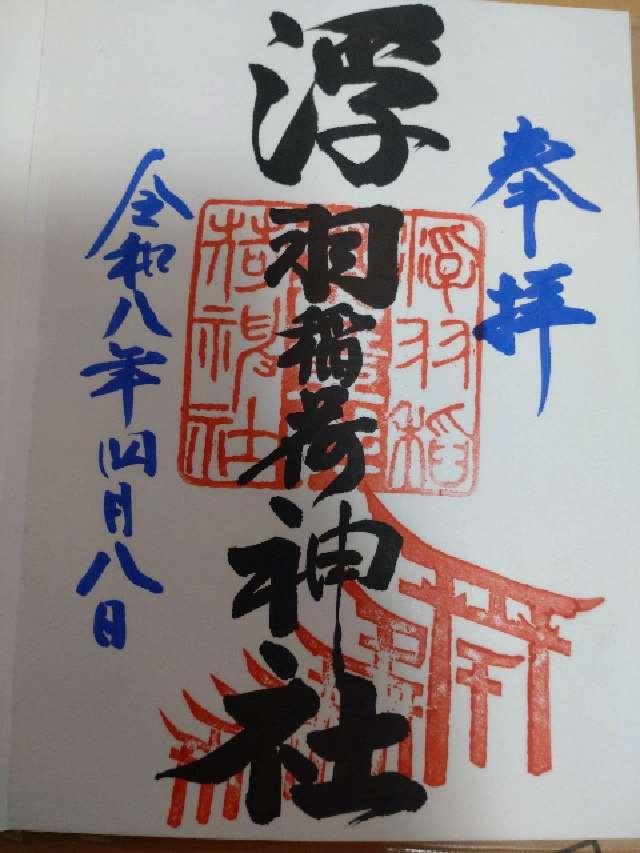 奉拝
浮羽稲荷神社
浮羽稲
荷神社
令和八年四月八日